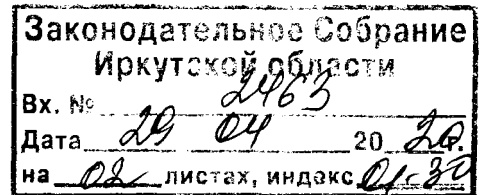 Законодательное Собрание
Иркутской области
Вх. № 2463
Дата 29 04 2020г.
на 02 листах, индекс 01-30